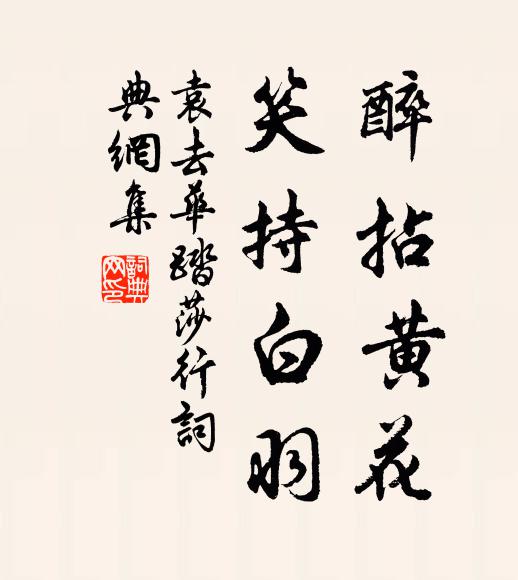 醉拈黄花
笑持白羽
袁去華踏莎行詞
典網集
詞典網印